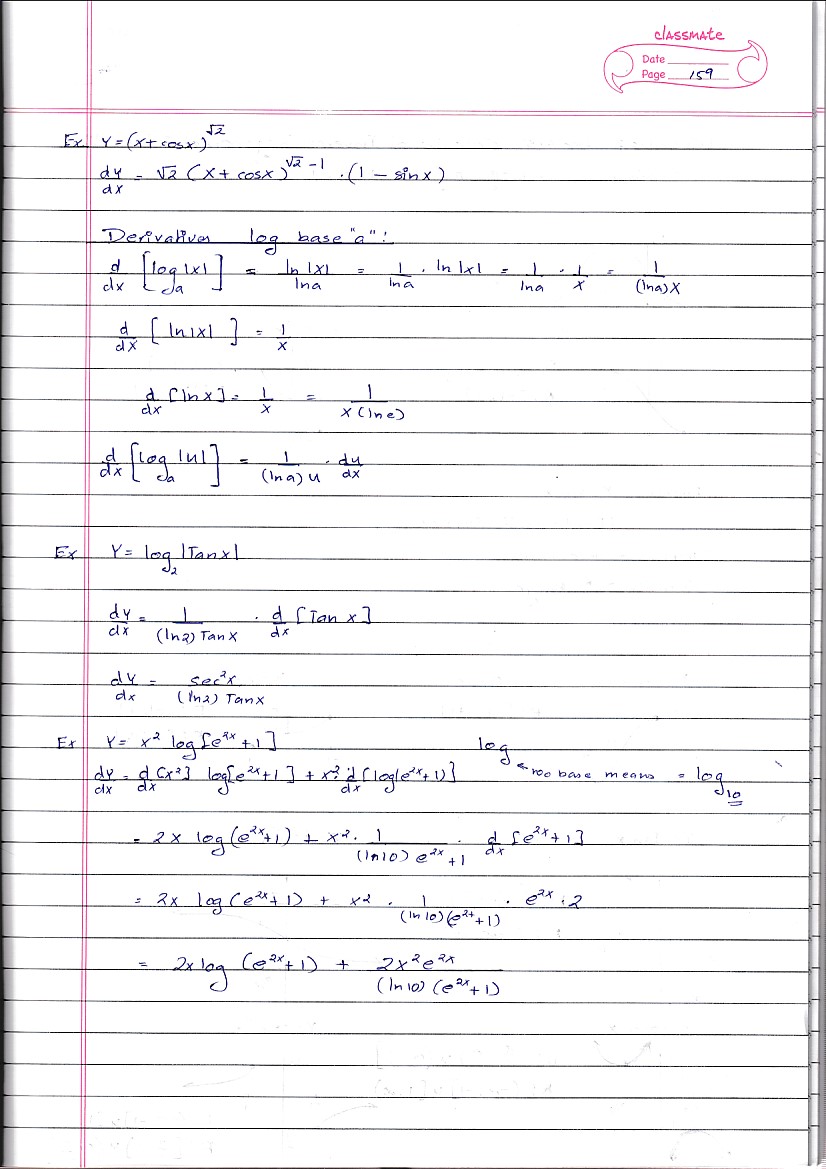 classmate
Date
Page 159
Ex Y = (x + cosx)^√2
dy/dx = √2 (x + cosx)^(√2 - 1) . (1 - sinx)
Derivatives log base "a":
d/dx [log_a |x|] = ln|x|/lna = 1/lna . ln|x| = 1/lna . 1/x = 1/(lna)x
d/dx [ln|x|] = 1/x
d/dx [lnx] = 1/x = 1/x(lne)
d/dx [log_a |u|] = 1/(lna)u . du/dx
Ex Y = log_2 |Tanx|
dy/dx = 1/(ln2) Tanx . d/dx [Tan x]
dy/dx = sec²x/(ln2) Tanx
Ex Y = x² log[e^2x + 1] log
dy/dx = d/dx [x²] log[e^2x + 1] + x² . d/dx [log(e^2x + 1)] ← no base means = log_10
= 2x log(e^2x + 1) + x² . 1/(ln10) e^2x + 1 . d/dx [e^2x + 1]
= 2x log(e^2x + 1) + x² . 1/(ln10)(e^2x + 1) . e^2x . 2
= 2x log (e^2x + 1) + 2x²e^2x/(ln10)(e^2x + 1)